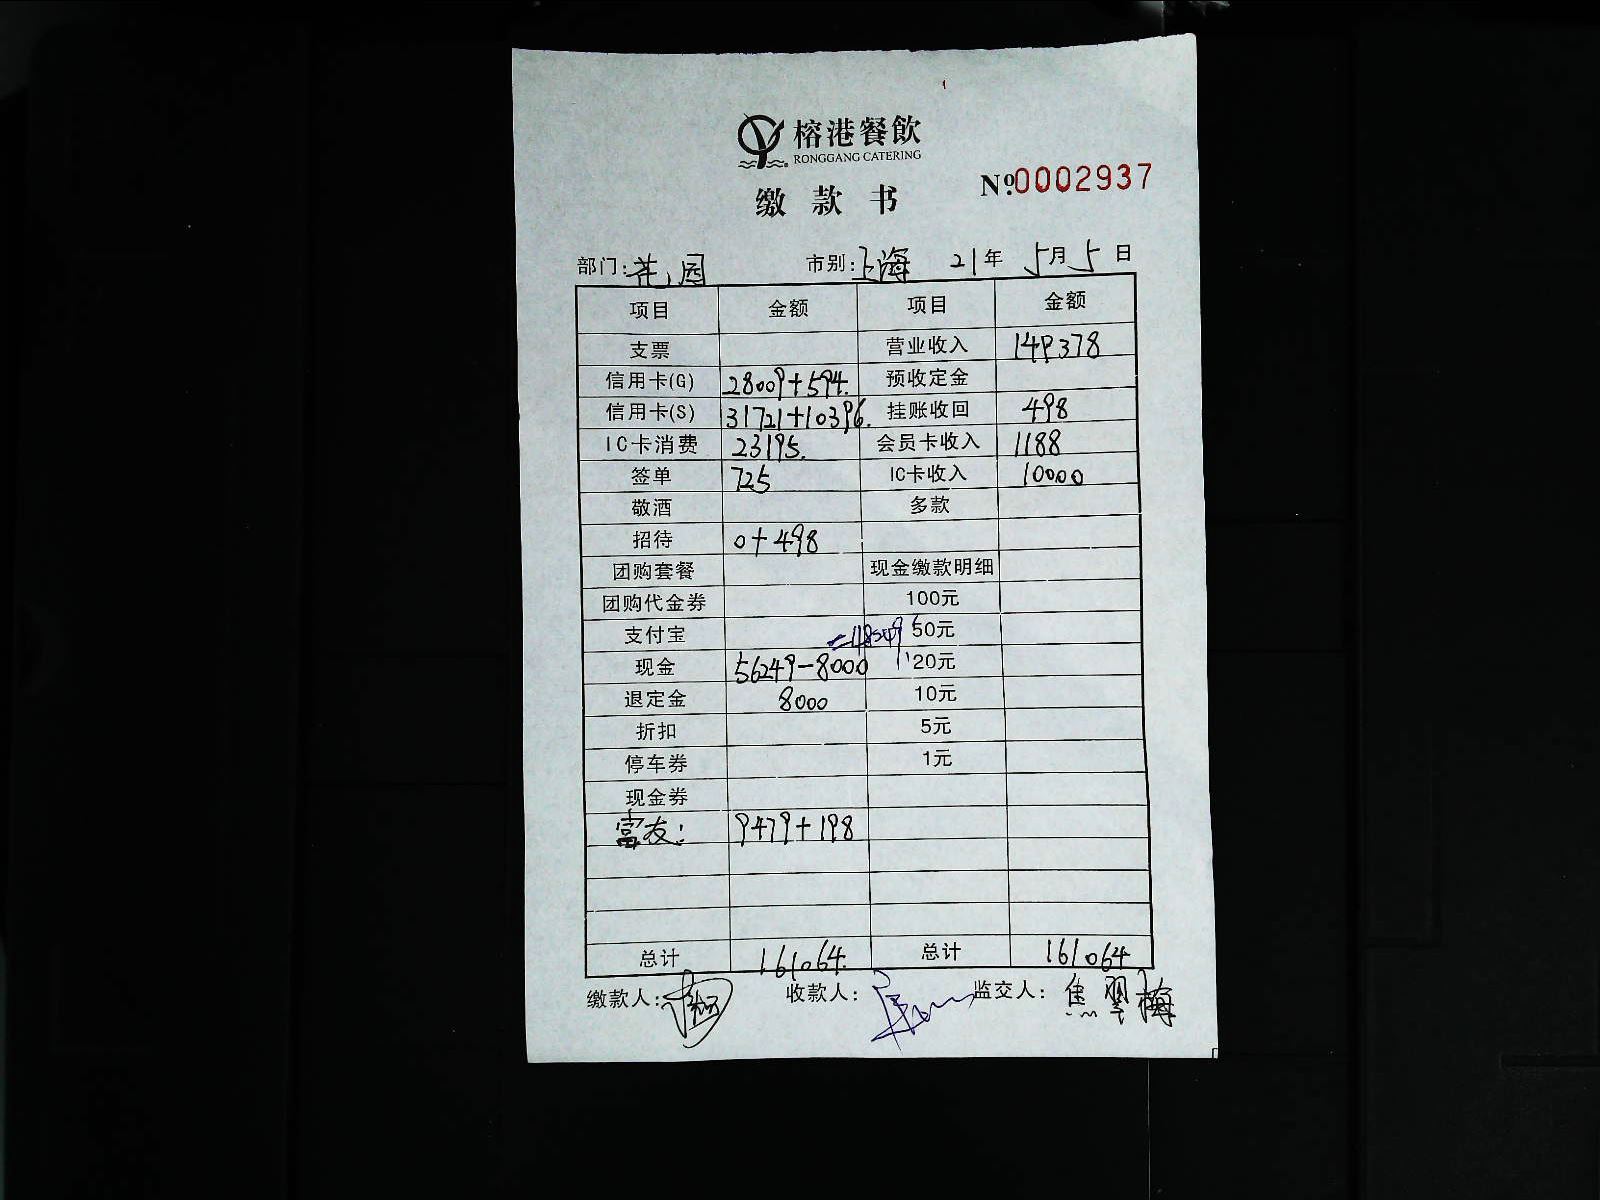 榕港餐飲
RONGGANG CATERING
缴款书
№0002937
部门:花园 市别:上海 21年 5月5日
项目 金额 项目 金额
支票 营业收入 149378
信用卡(G) 28009+594. 预收定金
信用卡(S) 31721+10396. 挂账收回 498
IC卡消费 23195. 会员卡收入 1188
签单 725 IC卡收入 10000
敬酒 多款
招待 0+498
团购套餐 现金缴款明细
团购代金券 100元
支付宝 50元
现金 56249-8000 20元
退定金 8000 10元
折扣 5元
停车券 1元
现金券
富友: 9479+198
总计 161064. 总计 161064
缴款人: 收款人: 监交人:焦翠梅